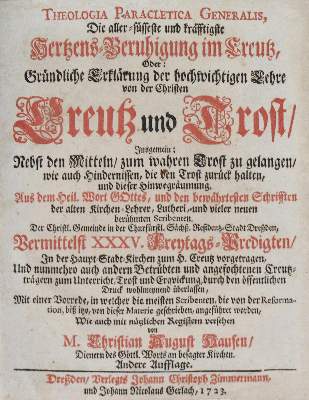 THEOLOGIA PARACLETICA GENERALIS,
Die aller-süsseste und kräfftigste
Hertzens-Beruhigung im Creutz,
Oder:
Gründliche Erklärung der hochwichtigen Lehre
von der Christen
Creutz und Trost/
Insgemein:
Nebst den Mitteln/ zum wahren Trost zu gelangen/
wie auch Hindernissen, die den Trost zurück halten,
und dieser Hinwegräumung,
Aus dem Heil. Wort GOttes, und den bewährtesten Schrifften
der alten Kirchen-Lehrer, Lutheri,-und vieler neuen
berühmten Scribenten,
Der Christl. Gemeinde in der Churfürstl. Sächß. Residentz-Stadt Dreßden,
Vermittelst XXXV. Freytags-Predigten/
In der Haupt-Stadt-Kirchen zum H. Creutz vorgetragen,
Und nunmehro auch andern Betrübten und angefochtenen Creutz-
trägern zum Unterricht, Trost und Erqvickung, durch den öffentlichen
Druck wohlmeynend überlassen,
Mit einer Vorrede, in welcher die meisten Scribenten, die von der Reforma-
tion, biß itzo, von dieser Materie geschrieben, angeführet worden,
Wie auch mit nöthigen Registern versehen
von
M. Christian August Hausen/
Dienern des Göttl. Worts an besagter Kirchen.
Andere Aufflage.
Dreßden/ Verlegts Johann Christoph Zimmermann,
und Johann Nicolaus Gerlach, 1723.